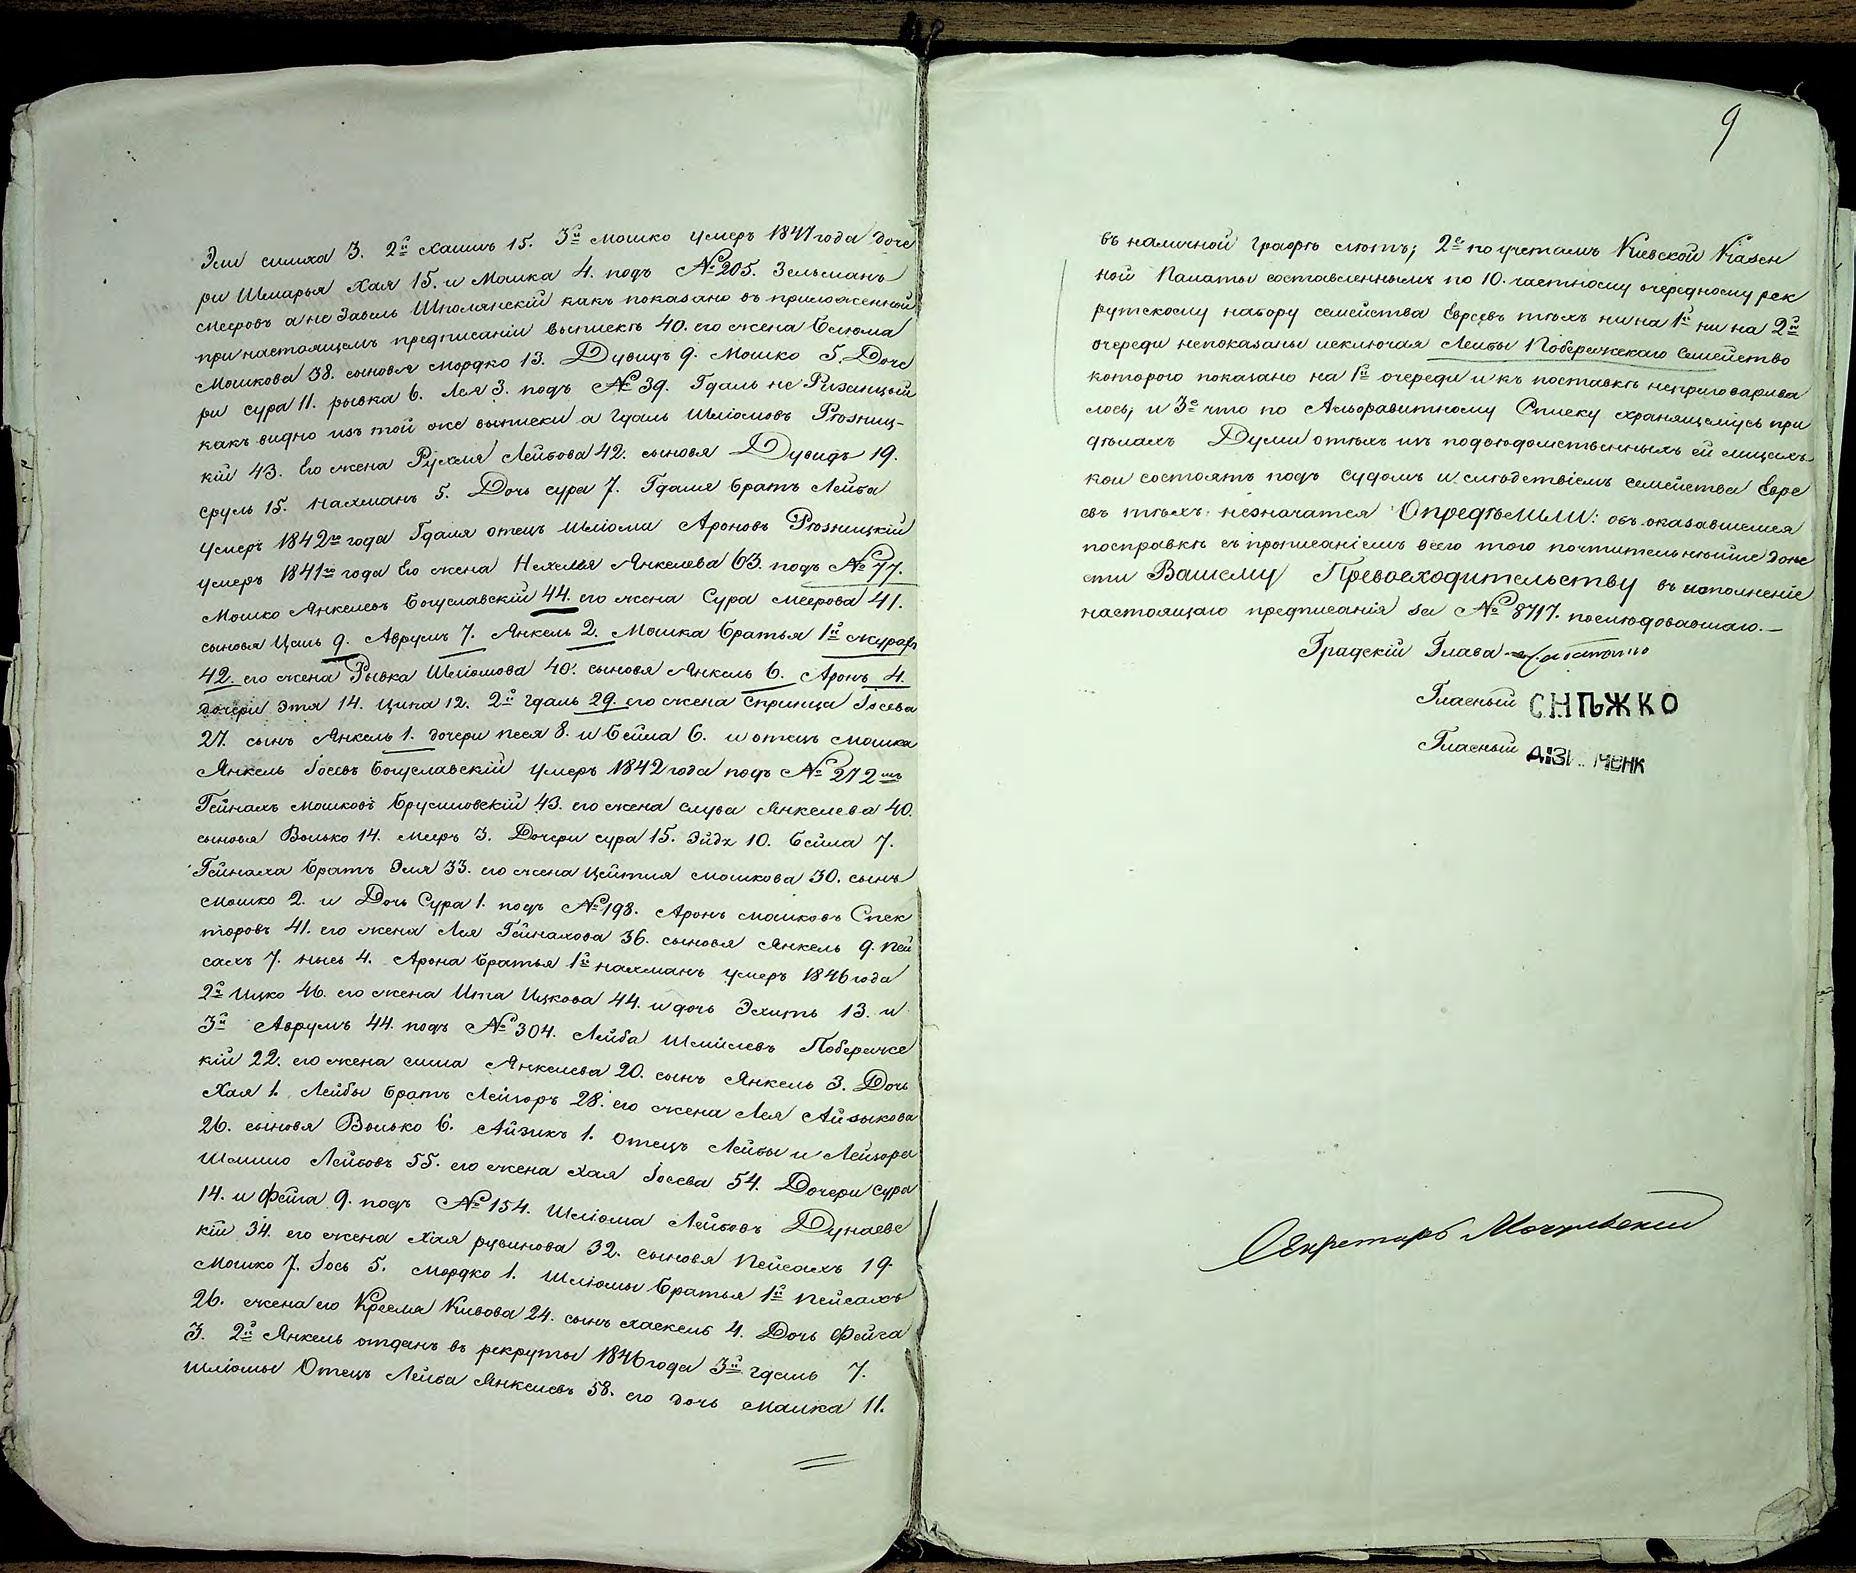 Эли симха 3. 2й Хаимъ 15. 3й Мошко умеръ 1847 года доче
ри Шмарья Хая 15. и Малка 4. подъ № 205. Зельманъ
Мееровъ а не Завель Шполянскій какъ показано въ приложенной
при настоящемъ предписаніи выпискѣ 40. его жена Блюма
Мошкова 38. сыновя Мордко 13. Дувидъ 9. Мошко 5. Доче
ри сура 11. рывка 6. Лея 3. подъ № 39. Гдаль не Ризницкій
какъ видно изъ той же выписки а Гдаль Шліомовъ Рѣзниц-
кій 43. Его жена Рухля Лейбова 42. сыновя Дувидъ 19.
сруль 15. Нахманъ 5. Дочь сура 7. Гдаля братъ Лейба
умеръ 1842го года Гдаля отецъ Шліома Ароновъ Рѣзницкій
умеръ 1841го года Его жена Нехама Янкелева 63. подъ № 77.
Мошко Янкелевъ Богуславскій 44. его жена Сура Меерова 41.
сыновя Цаль 9. Аврумъ 7. Янкель 2. Мошка братья 1й
42. его жена Рывка Шліомова 40. сыновя Янкель 6. Аронъ 4.
дочери Этя 14. Ципа 12. 2й Гдаль 29. его жена Спринца Іосева
27. сынъ Янкель 1. дочери песя 8. и Бейла 6. и отецъ Мошка
Янкель Іосевъ Богуславскій умеръ 1842 года подъ № 272мъ
Гейнахъ Мошковъ Брусиловскій 43. его жена слува Янкелева 40.
сыновя Волько 14. Мееръ 3. Дочери сура 15. Эйдя 10. Бейла 7.
Гейнаха братъ Эля 33. его жена Цейтля Мошкова 30. сынъ
Мошко 2. и Дочь Сура 1. подъ № 198. Аронъ Мошковъ Спек
торовъ 41. его жена Лея Гейнахова 36. сыновя Янкель 9. Пей
сахъ 7. Нысь 4. Арона братья 1й Нахманъ умеръ 1846 года
2й Ицко 46. его жена Ита Ицкова 44. и дочь Эсхить 13. и
3й Аврумъ 44. подъ № 304. Лейба Шмилевъ Побережс
кій 22. его жена сима Янкелева 20. сынъ Янкель 3. Дочь
Хая 1. Лейбы братъ Лейзоръ 28. его жена Лея Айзыкова
26. сыновя Волько 6. Айзикъ 1. Отецъ Лейбы и Лейзора
Шмило Лейбовъ 55. его жена Хая Іосева 54. Дочери сура
14. и Фейга 9. подъ № 154. Шліома Лейбовъ Дунаевс
кій 34. его жена Хая рувинова 32. сыновя Пейсахъ 19.
Мошко 7. Іось 5. Мордко 1. Шліомы братья 1й Пейсахъ
26. жена его Крейля Кивова 24. сынъ Хаскель 4. Дочь Фейга
3. 2й Янкель отданъ въ рекруты 1846 года 3й Гдаль 7.
Шліомы Отецъ Лейба Янкелевъ 58. его дочь Малка 11.
9
въ наличной графѣ слютъ; 2е по учетамъ Кіевской Казен
ной Палаты составленнымъ по 10. частному очередному рек
рутскому набору семейства Евреевъ тѣхъ ни на 1й ни на 2й
очереди непоказаны исключая Лейбы Побережскаго семейство
котораго показано на 1й очереди и къ поставкѣ неприговарива
лось, и 3е что по Алфавитному Списку хранящемусь при
дѣлахъ Думы отѣхъ изъ подвѣдомственныхъ ей лицахъ
кои состоятъ подъ судомъ и слѣдствіемъ семейства Евре
евъ тѣхъ незначатся Опредѣлили: объ оказавшемся
посправкѣ съ прописаніемъ всего того почтительнѣйше доне
сти Вашему Превосходительству въ исполненіе
настоящаго предписанія за № 8717. послѣдовавшаго.—
Градскій Глава
Гласный СНѢЖКО
Гласный
Секретарь